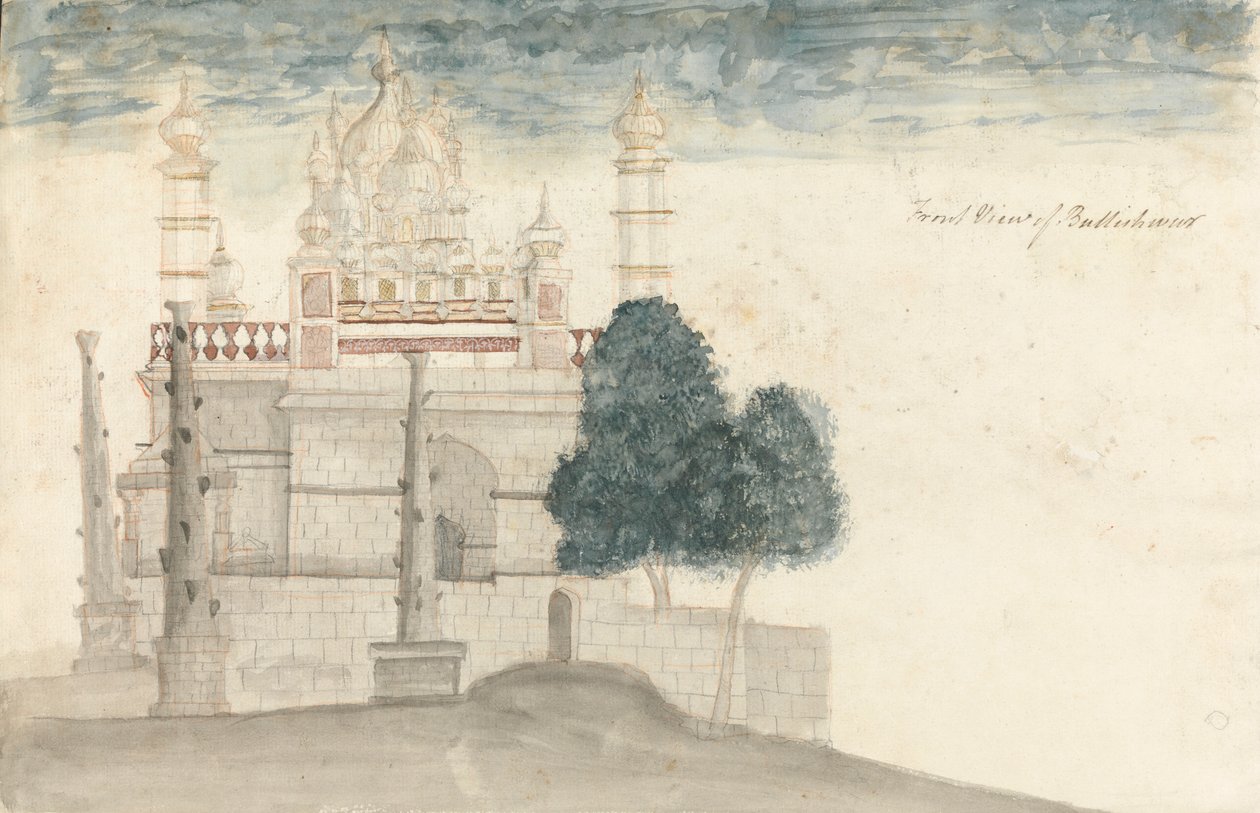 Front View of Bulleshwur